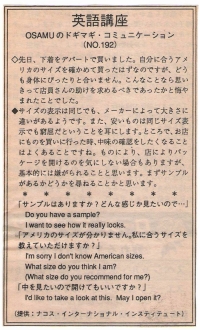 英語講座
OSAMUのドギマギ・コミュニケーション
(NO.192)
◇先日、下着をデパートで買いました。自分に合うアメ
リカのサイズを確かめて買ったはずなのですが、どう
も身体にぴったりと合いません。こんなことなら思い
きって店員さんの助けを求めるべきであったかと悔や
まれたことでした。
◆サイズの表示は同じでも、メーカーによって大きさに
違いがあるようです。また、安いものは同じサイズ表
示でも窮屈だということを耳にします。ところで、お店
にものを買いに行った時、中味の確認をしたくなること
はよくあることですね。ものにより、店によりパッケ
ージを開けるのを気にしない場合もありますが、
基本的には嫌がられることと思います。まずサンプル
があるかどうかを尋ねることかと思います。
* * * * * * * *
「サンプルはありますか？どんな感じか見たいので…」
Do you have a sample?
I want to see how it really looks.
「アメリカのサイズが分かりません。私に合うサイズを
教えていただけますか？」
I'm sorry I don't know American sizes.
What size do you think I am?
(What size do you recommend for me?)
「中を見たいので開けてもいいですか？」
I'd like to take a look at this. May I open it?
(提供：ナコス・インターナショナル・インスティテュート)